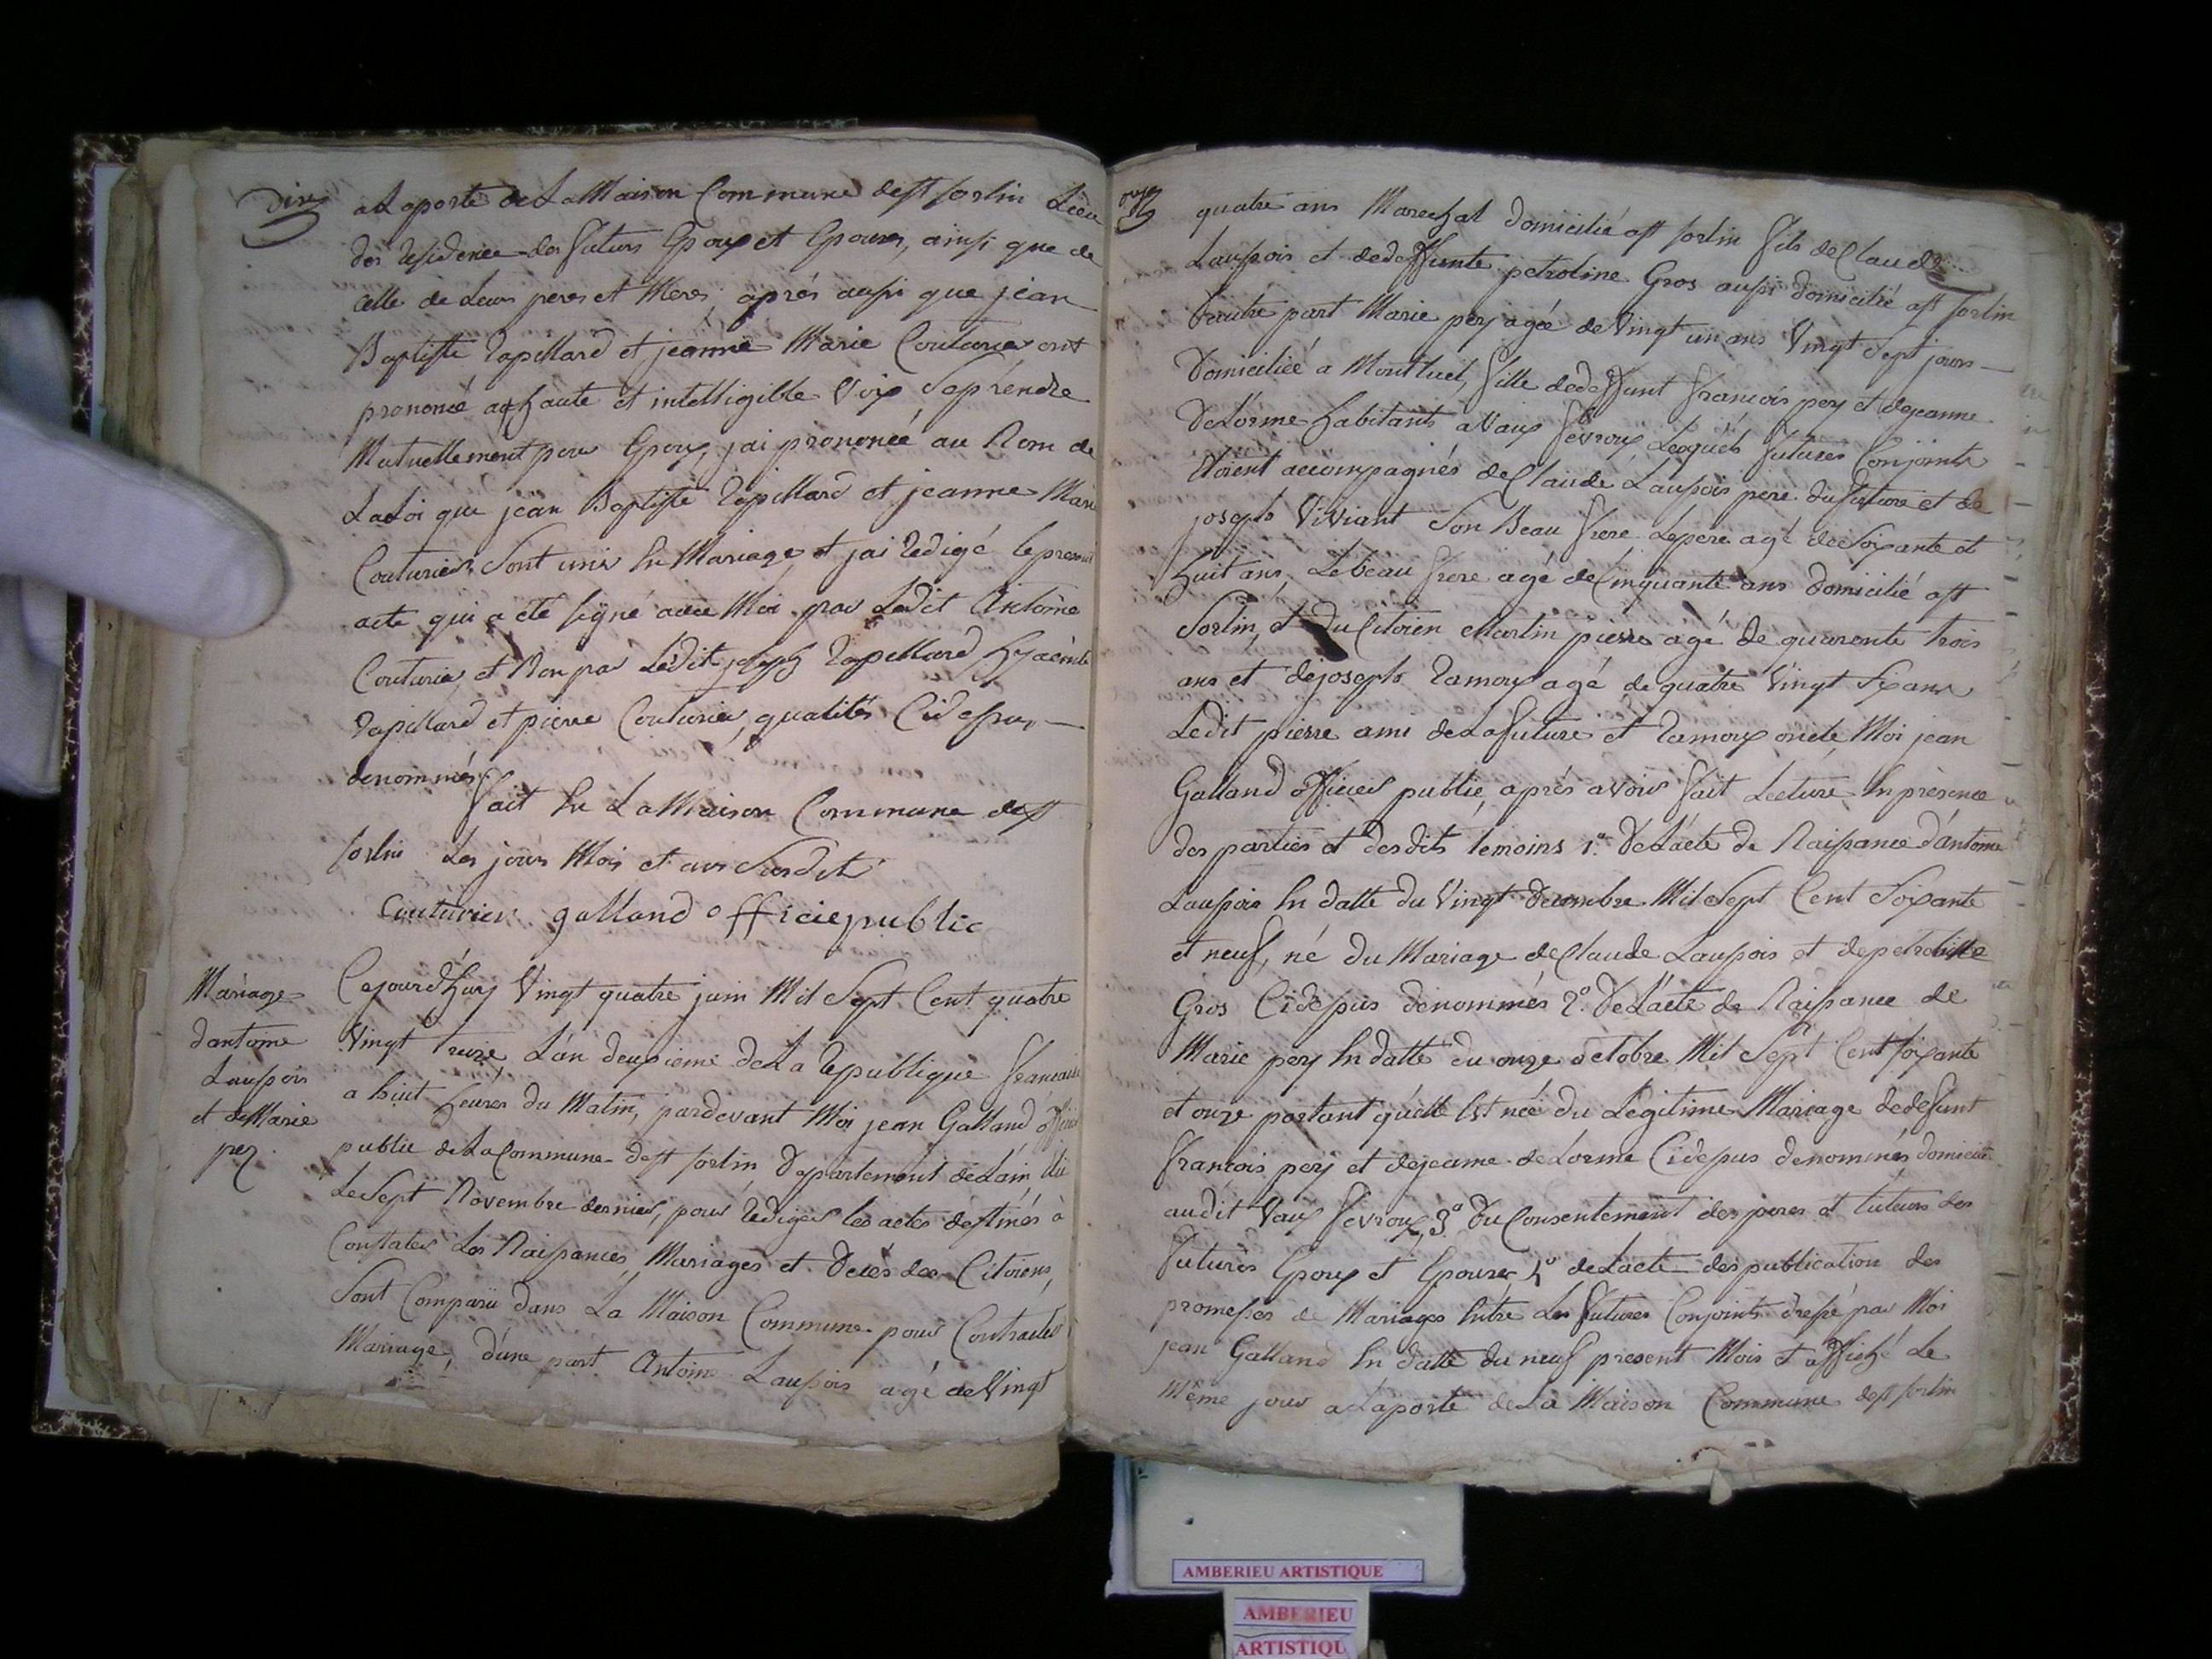 Dix
a La porte de La Maison Commune de st sorlin Lieu
des residence des futurs Epoux et Epouses, ainsi que de
celle de Leurs peres et Meres, aprés aussi que jean
Baptiste Rapillard et jeanne Marie Couturier ont
prononcé a haute et intelligible Voix Se prendre
Mutuellement pour Epoux, j'ai prononcé au Nom de
La Loi que jean Baptiste Rapillard et jeanne Marie
Couturier Sont unis En Mariage, et j'ai redigé le present
acte qui a été signé avec Moi par Ledit Antoine
Couturier, et Non par Ledit joseph Rapillard hyacinte
Rapillard et pierre Couturier, qualités Cidessus
denommés
fait En La Maison Commune de st
sorlin Les jours Mois et ans Susdit
Couturier galland officie public
Mariage
d'antoine
Laussois
et de Marie
pey.
Cejourd'huy Vingt quatre juin Mil Sept Cent quatre
Vingt treize, L'an deuxieme de La republique francaise
a huit heures du Matin, pardevant Moi jean Galland officier
public de La Commune de st sorlin Departement de L'ain, élu
Le Sept Novembre dernier, pour rediger les actes destinés à
Constater Les Naissances, Mariages et Decés des Citoiens,
Sont Comparu dans La Maison Commune pour Contracter
Mariage, d'une part Antoine Laussois agé de Vingt
onze
quatre ans Marechal domicilié a st sorlin fils de Claude
Laussois et de deffunte petroline Gros aussi domicilié a st sorlin
d'autre part Marie pey agée de Vingt un ans Vingt Sept jours
Domiciliée a Montluel, fille de deffunt francois pey et de jeanne
De Lorme habitants a Vaux fevroux, Lesquels futures Conjoints
étoient accompagnés de Claude Laussois pere du future et de
joseph Viviant Son Beau frere Le pere agé de Soixante et
huit ans, Le beau frere agé de Cinquante ans domicilié a st
Sorlin, et du Citoien Martin pierre agé de quarente trois
ans et de joseph Ramoux agé de quatre Vingt Six ans
Ledit pierre ami de La future et Ramoux oncle, Moi jean
Galland officier public, aprés avoir fait Lecture En présence
des parties et desdits temoins 1.º De L'acte de Naissance d'antoine
Laussois En datte du Vingt decembre Mil Sept Cent Soixante
et neuf, né du Mariage de Claude Laussois et de petroline
Gros Cidessus denommés 2.º De L'acte de Naissance de
Marie pey En datte du onze octobre Mil Sept Cent soixante
et onze portant qu'elle Est née du Légitime Mariage de defunt
francois pey et de jeanne de Lorme Cidessus denommés domiciliés
audit Vaux fevroux, 3.º Du Consentement des peres et tuteurs des
futures Epoux et Epouses 4.º de L'acte des publication des
promesses de Mariages Entre Les futures Conjoints dressé par Moi
jean Galland En datte du neuf present Mois et affiché Le
Même jour a La porte de La Maison Commune de st sorlin
AMBERIEU ARTISTIQUE
AMBERIEU
ARTISTIQU